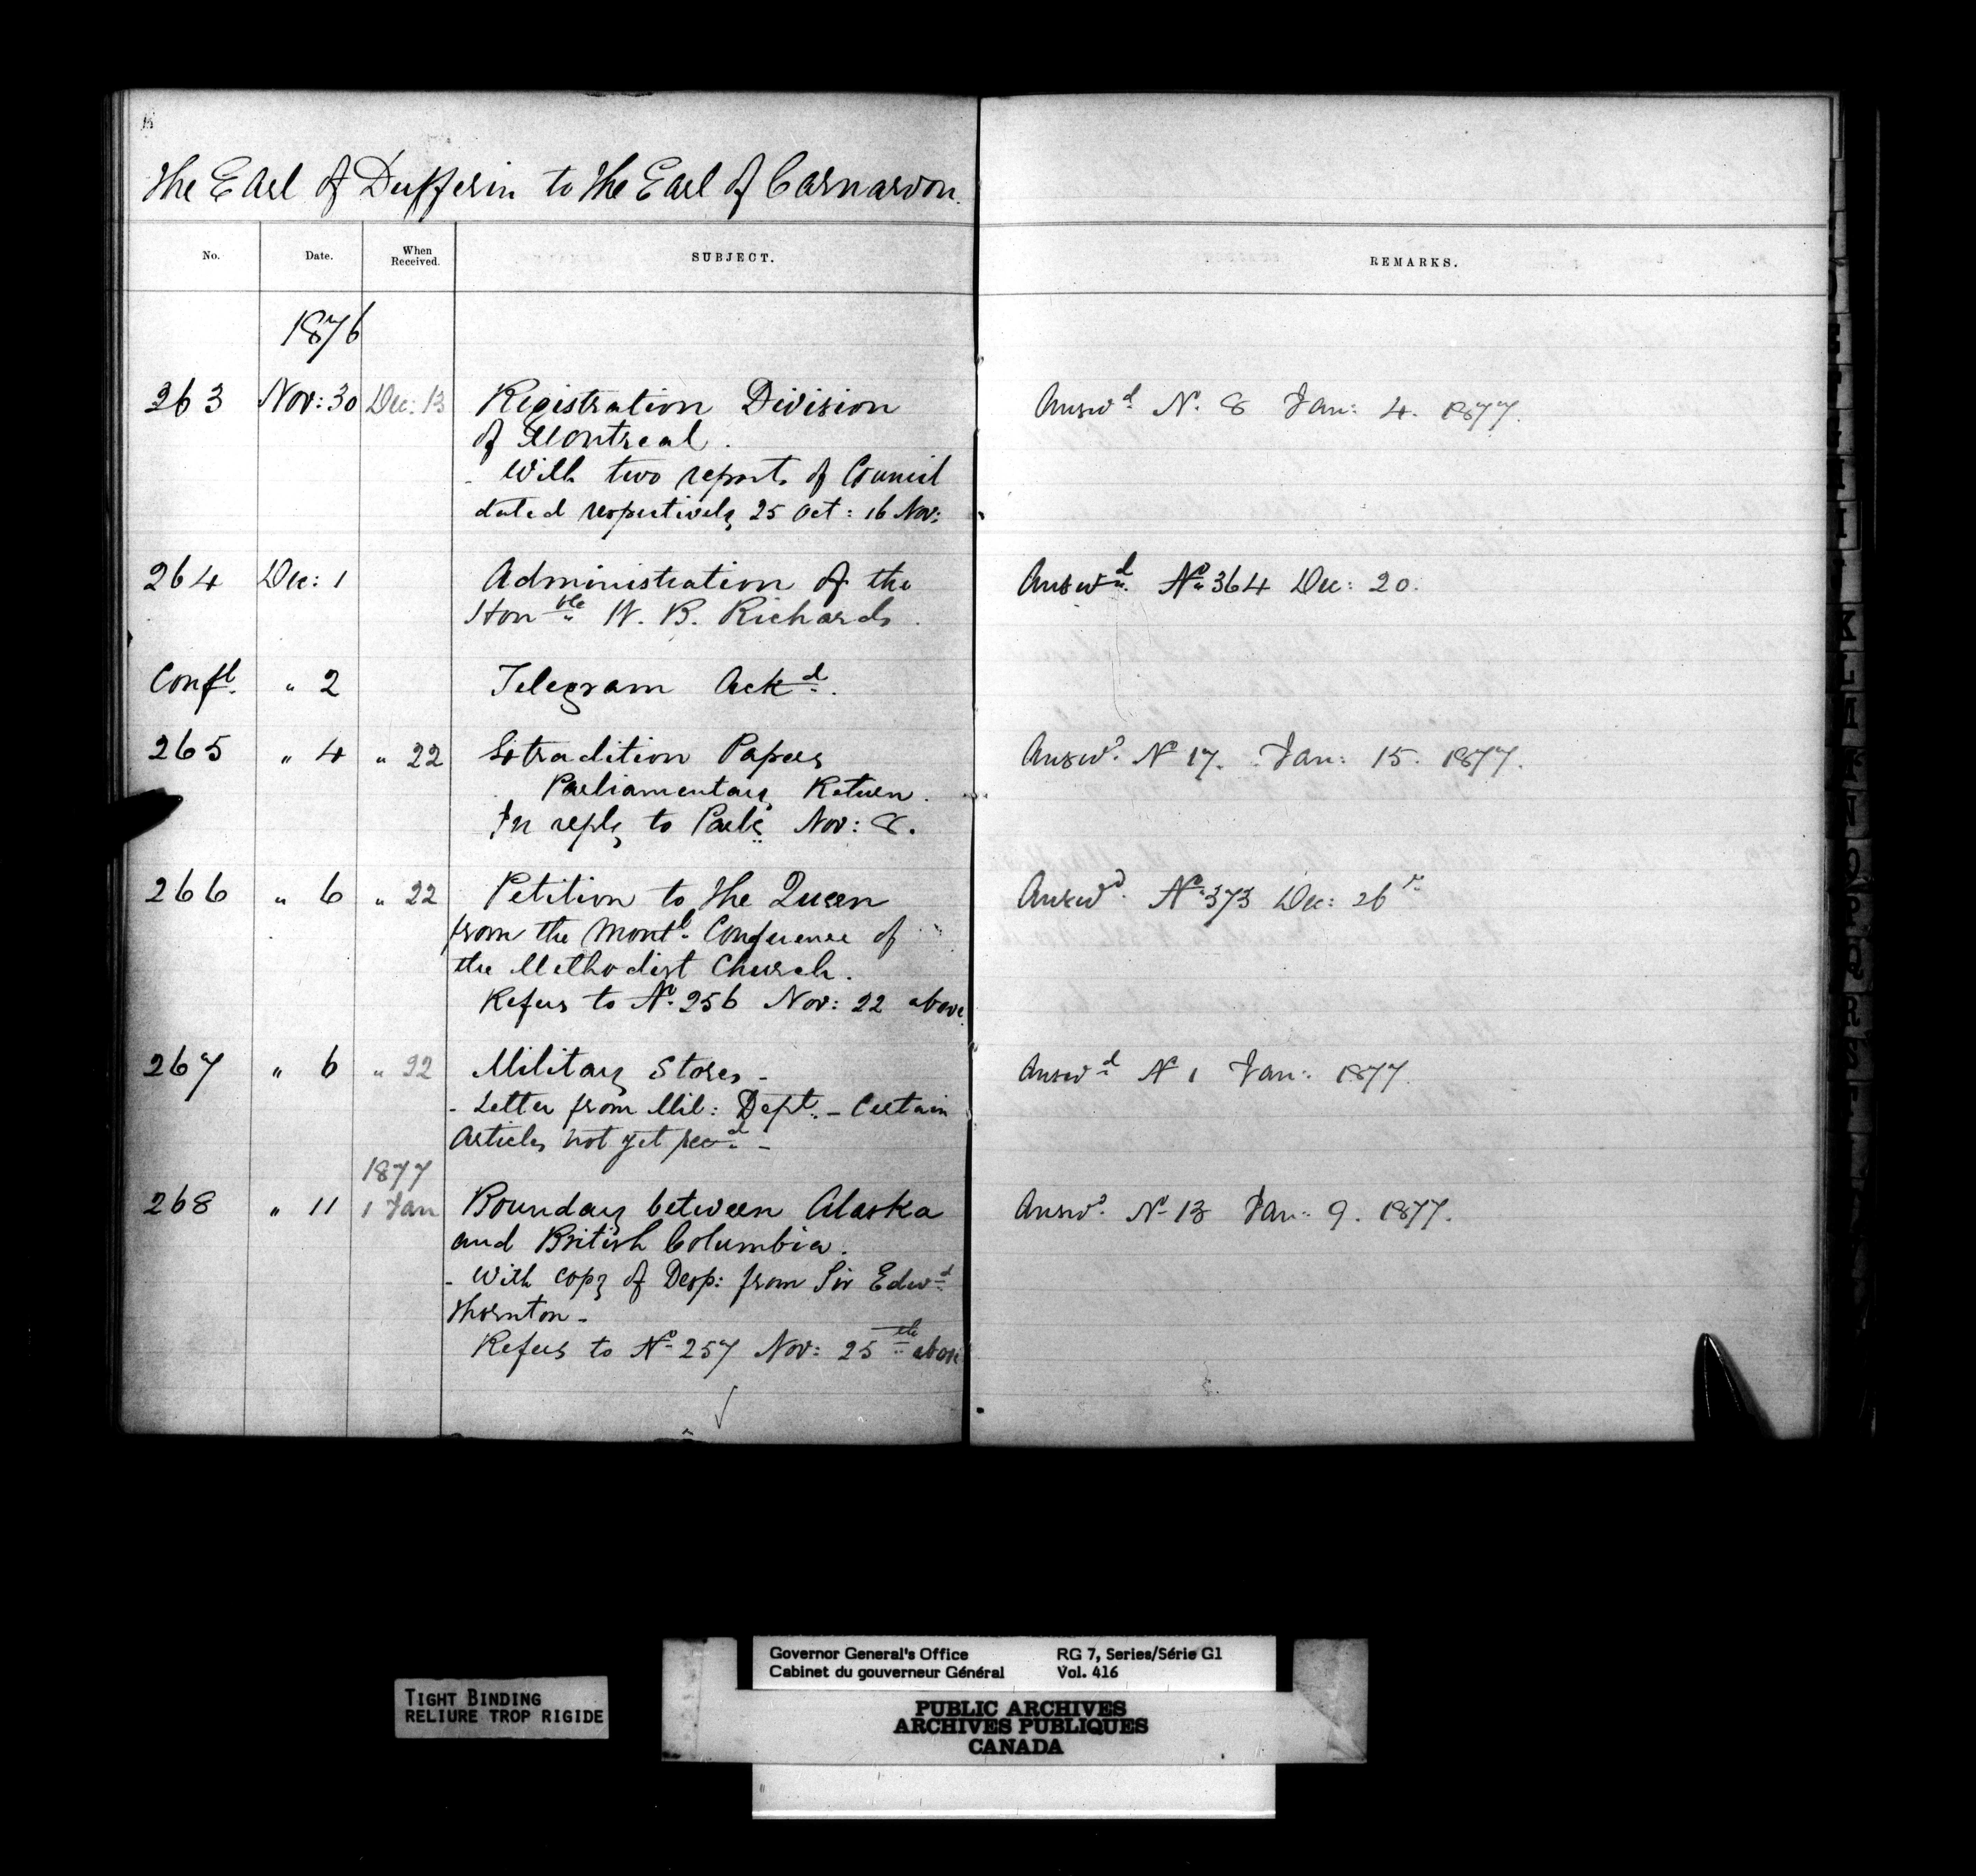 The Earl of Dufferin to the Earl of Carnarvon.
No. Date. When Received. SUBJECT. REMARKS.
1876
263 Nov: 30 Dec: 13 Registration Division Answd. No. 8 Jan: 4. 1877.
of Montreal.
- With two reports of Council
dated respectively 25 Oct: 16 Nov:
264 Dec: 1 Administration of the Answd. No. 364 Dec: 20.
Honble W. B. Richards.
Confl. " 2 Telegram Ackd.
265 " 4 " 22 Extradition Papers Answd. No 17. Jan: 15. 1877.
Parliamentary Return.
In reply to Nov: 8.
266 " 6 " 22 Petition to the Queen Answd. No. 373 Dec: 26
from the Montl. Conference of
the Methodist Church.
Refers to No. 256 Nov: 22 above
267 " 6 " 22 Military Stores - Answd. No 1 Jan: 1877.
- Letter from Mil: Dept. - Certain
Articles not yet recd. -
1877
268 " 11 1 Jan Boundary between Alaska Answd. No 13 Jan: 9. 1877.
and British Columbia.
- With copy of Desp: from Sir Edwd.
Thornton -
Refers to No. 257 Nov: 25th above
TIGHT BINDING
RELIURE TROP RIGIDE
Governor General's Office RG 7, Series/Série G1
Cabinet du gouverneur Général Vol. 416
PUBLIC ARCHIVES
ARCHIVES PUBLIQUES
CANADA